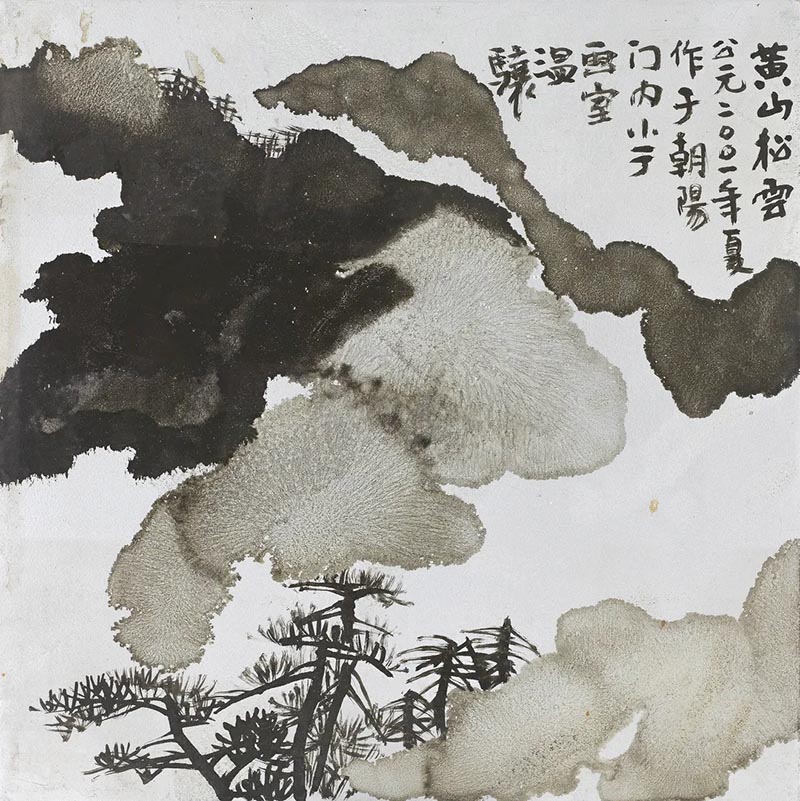 黄山松雲
公元二〇〇一年夏
作于朝陽
门内小
画室
温
驤